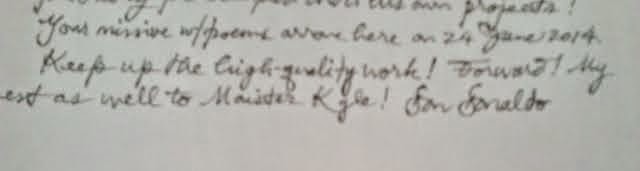 own projects!
Your missive w/poems arrove here on 24 June 2014.
Keep up the high-quality work! Forward! My
est as well to Maister Kyle! San Sanaldo